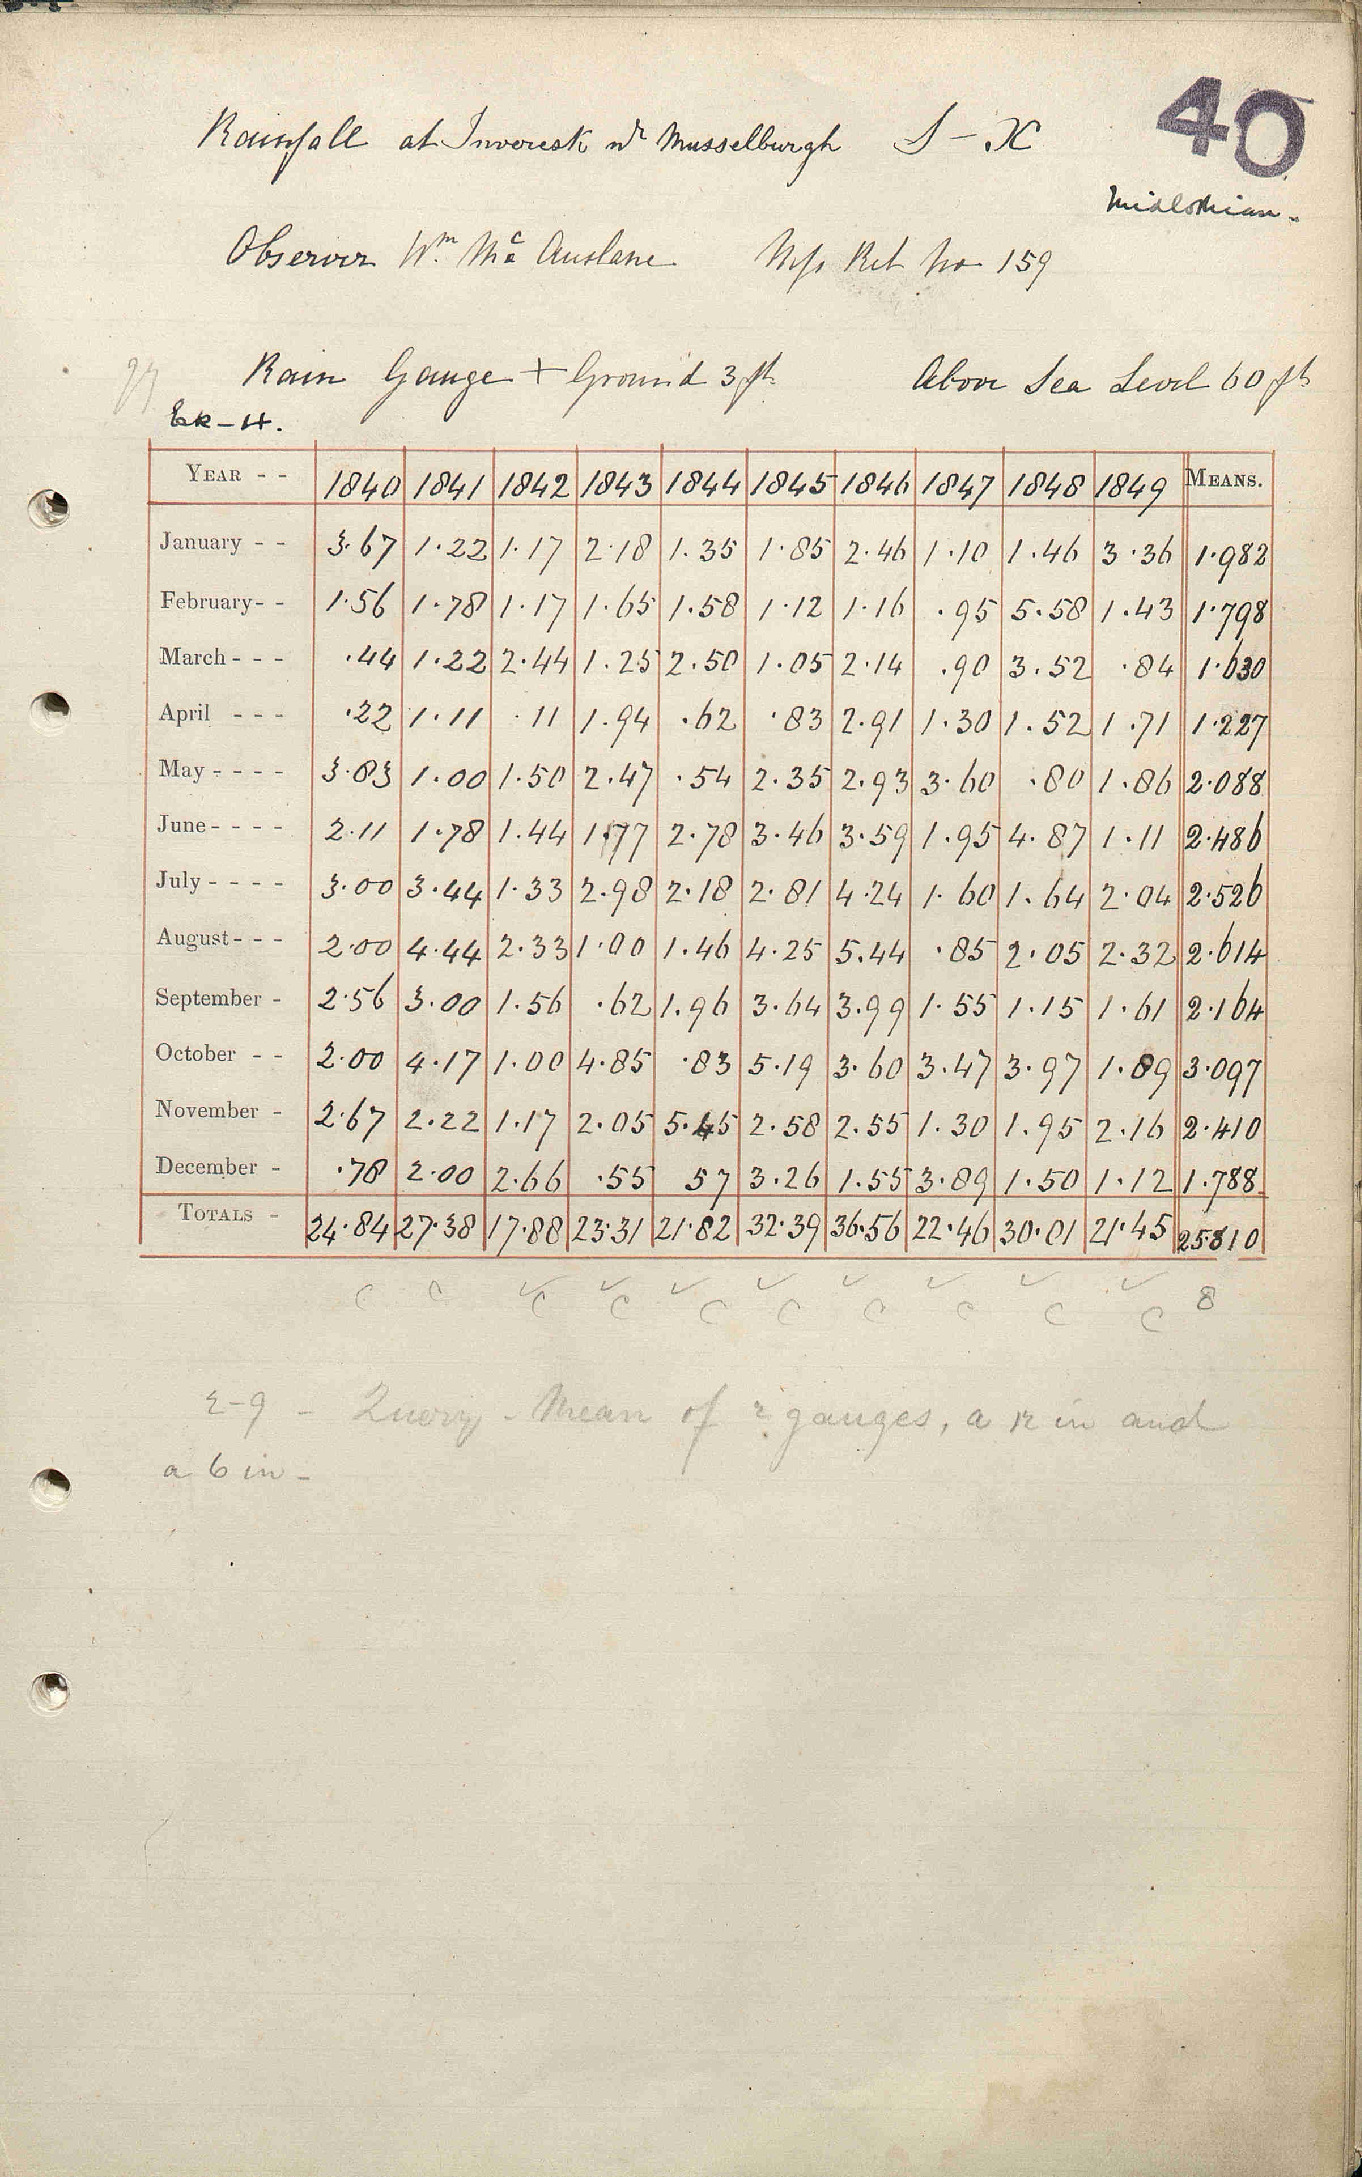 40
Rainfall at Inveresk nr Musselburgh S-X
Midlothian.
Observer Wm. Mc Auslane Mss Ret No 159
Rain Gauge + Ground 3 ft Above Sea Level 60 ft
YEAR - - 1840 1841 1842 1843 1844 1845 1846 1847 1848 1849 MEANS.
January - - 3.67 1.22 1.17 2.18 1.35 1.85 2.46 1.10 1.46 3.36 1.982
February- - 1.56 1.78 1.17 1.65 1.58 1.12 1.16 .95 5.58 1.43 1.798
March - - - .44 1.22 2.44 1.25 2.50 1.05 2.14 .90 3.52 .84 1.630
April - - - .22 1.11 .11 1.94 .62 .83 2.91 1.30 1.52 1.71 1.227
May - - - - 3.83 1.00 1.50 2.47 .54 2.35 2.93 3.60 .80 1.86 2.088
June - - - - 2.11 1.78 1.44 1.77 2.78 3.46 3.59 1.95 4.87 1.11 2.486
July - - - - 3.00 3.44 1.33 2.98 2.18 2.81 4.24 1.60 1.64 2.04 2.526
August - - - 2.00 4.44 2.33 1.00 1.46 4.25 5.44 .85 2.05 2.32 2.614
September - 2.56 3.00 1.56 .62 1.96 3.64 3.99 1.55 1.15 1.61 2.164
October - - 2.00 4.17 1.00 4.85 .83 5.19 3.60 3.47 3.97 1.89 3.097
November - 2.67 2.22 1.17 2.05 5.45 2.58 2.55 1.30 1.95 2.16 2.410
December - .78 2.00 2.66 .55 57 3.26 1.55 3.89 1.50 1.12 1.788
TOTALS - 24.84 27.38 17.88 23.31 21.82 32.39 36.56 22.46 30.01 21.45 25810
c c c c c c c c c c 8
2-9 - Query - Mean of 2 gauges, a 12 in and
a 6 in -